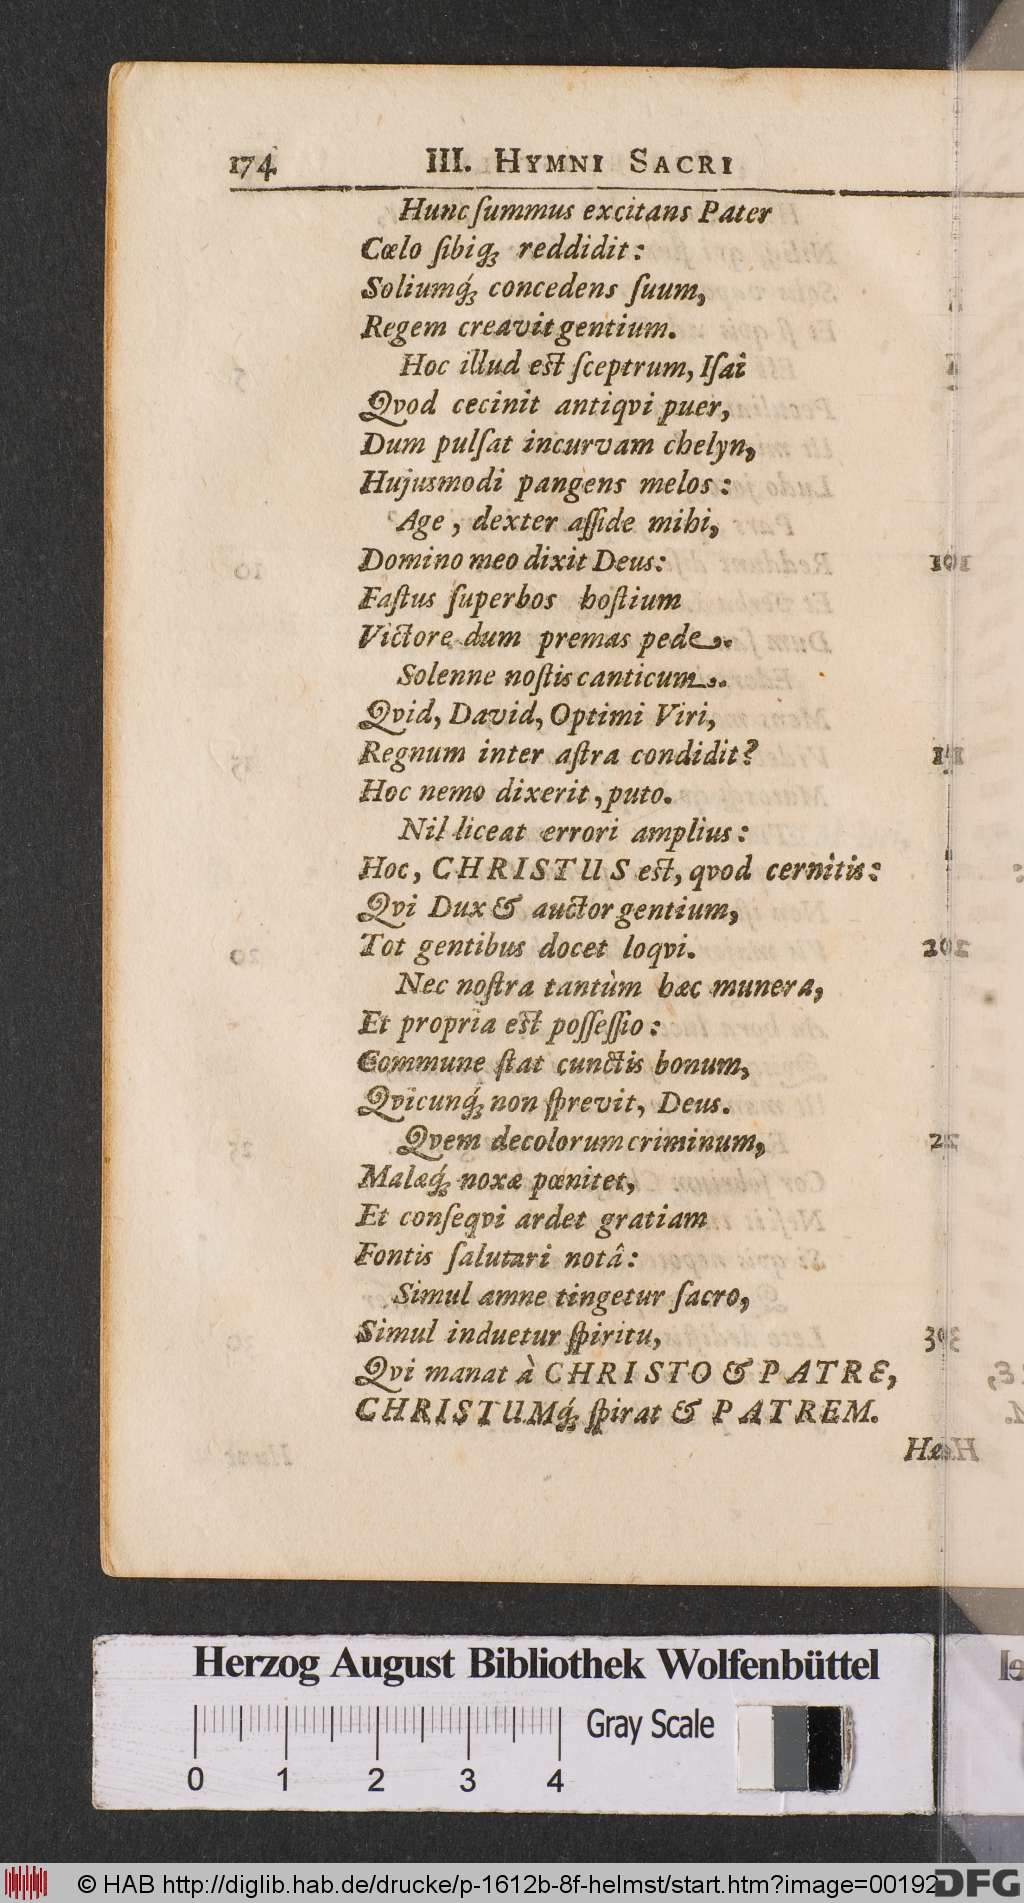 174 III. HYMNI SACRI
Hunc ſummus excitans Pater
Cœlo ſibiq́; reddidit:
Soliumq́; concedens ſuum,
Regem creavit gentium.
Hoc illud est ſceptrum, Iſai
Qvod cecinit antiqvi puer,
Dum pulſat incurvam chelyn,
Hujusmodi pangens melos:
Age, dexter aſſide mihi,
Domino meo dixit Deus: 10
Faſtus ſuperbos hoſtium
Victore dum premas pede.
Solenne noſtis canticum.
Qvid, David, Optimi Viri,
Regnum inter aſtra condidit? 15
Hoc nemo dixerit, puto.
Nil liceat errori amplius:
Hoc, CHRISTUS est, qvod cernitis:
Qvi Dux & auctor gentium,
Tot gentibus docet loqvi. 20
Nec noſtra tantùm hæc munera,
Et propria est poſſeſſio:
Commune ſtat cunctis bonum,
Qvicunq́; non ſprevit, Deus.
Qvem decolorum criminum,
Malæq́; noxæ pœnitet,
Et conſeqvi ardet gratiam
Fontis ſalutari notâ:
Simul amne tingetur ſacro,
Simul induetur ſpiritu, 30
Qvi manat à CHRISTO & PATRE,
CHRISTUMq́; ſpirat & PATREM.
Herzog August Bibliothek Wolfenbüttel
Gray Scale
0 1 2 3 4
© HAB http://diglib.hab.de/drucke/p-1612b-8f-helmst/start.htm?image=00192
DFG